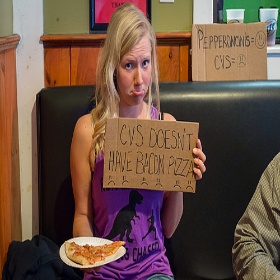 PEPPERONONIS=☺
CVS=☹
CVS DOESN'T
HAVE BACON PIZZA